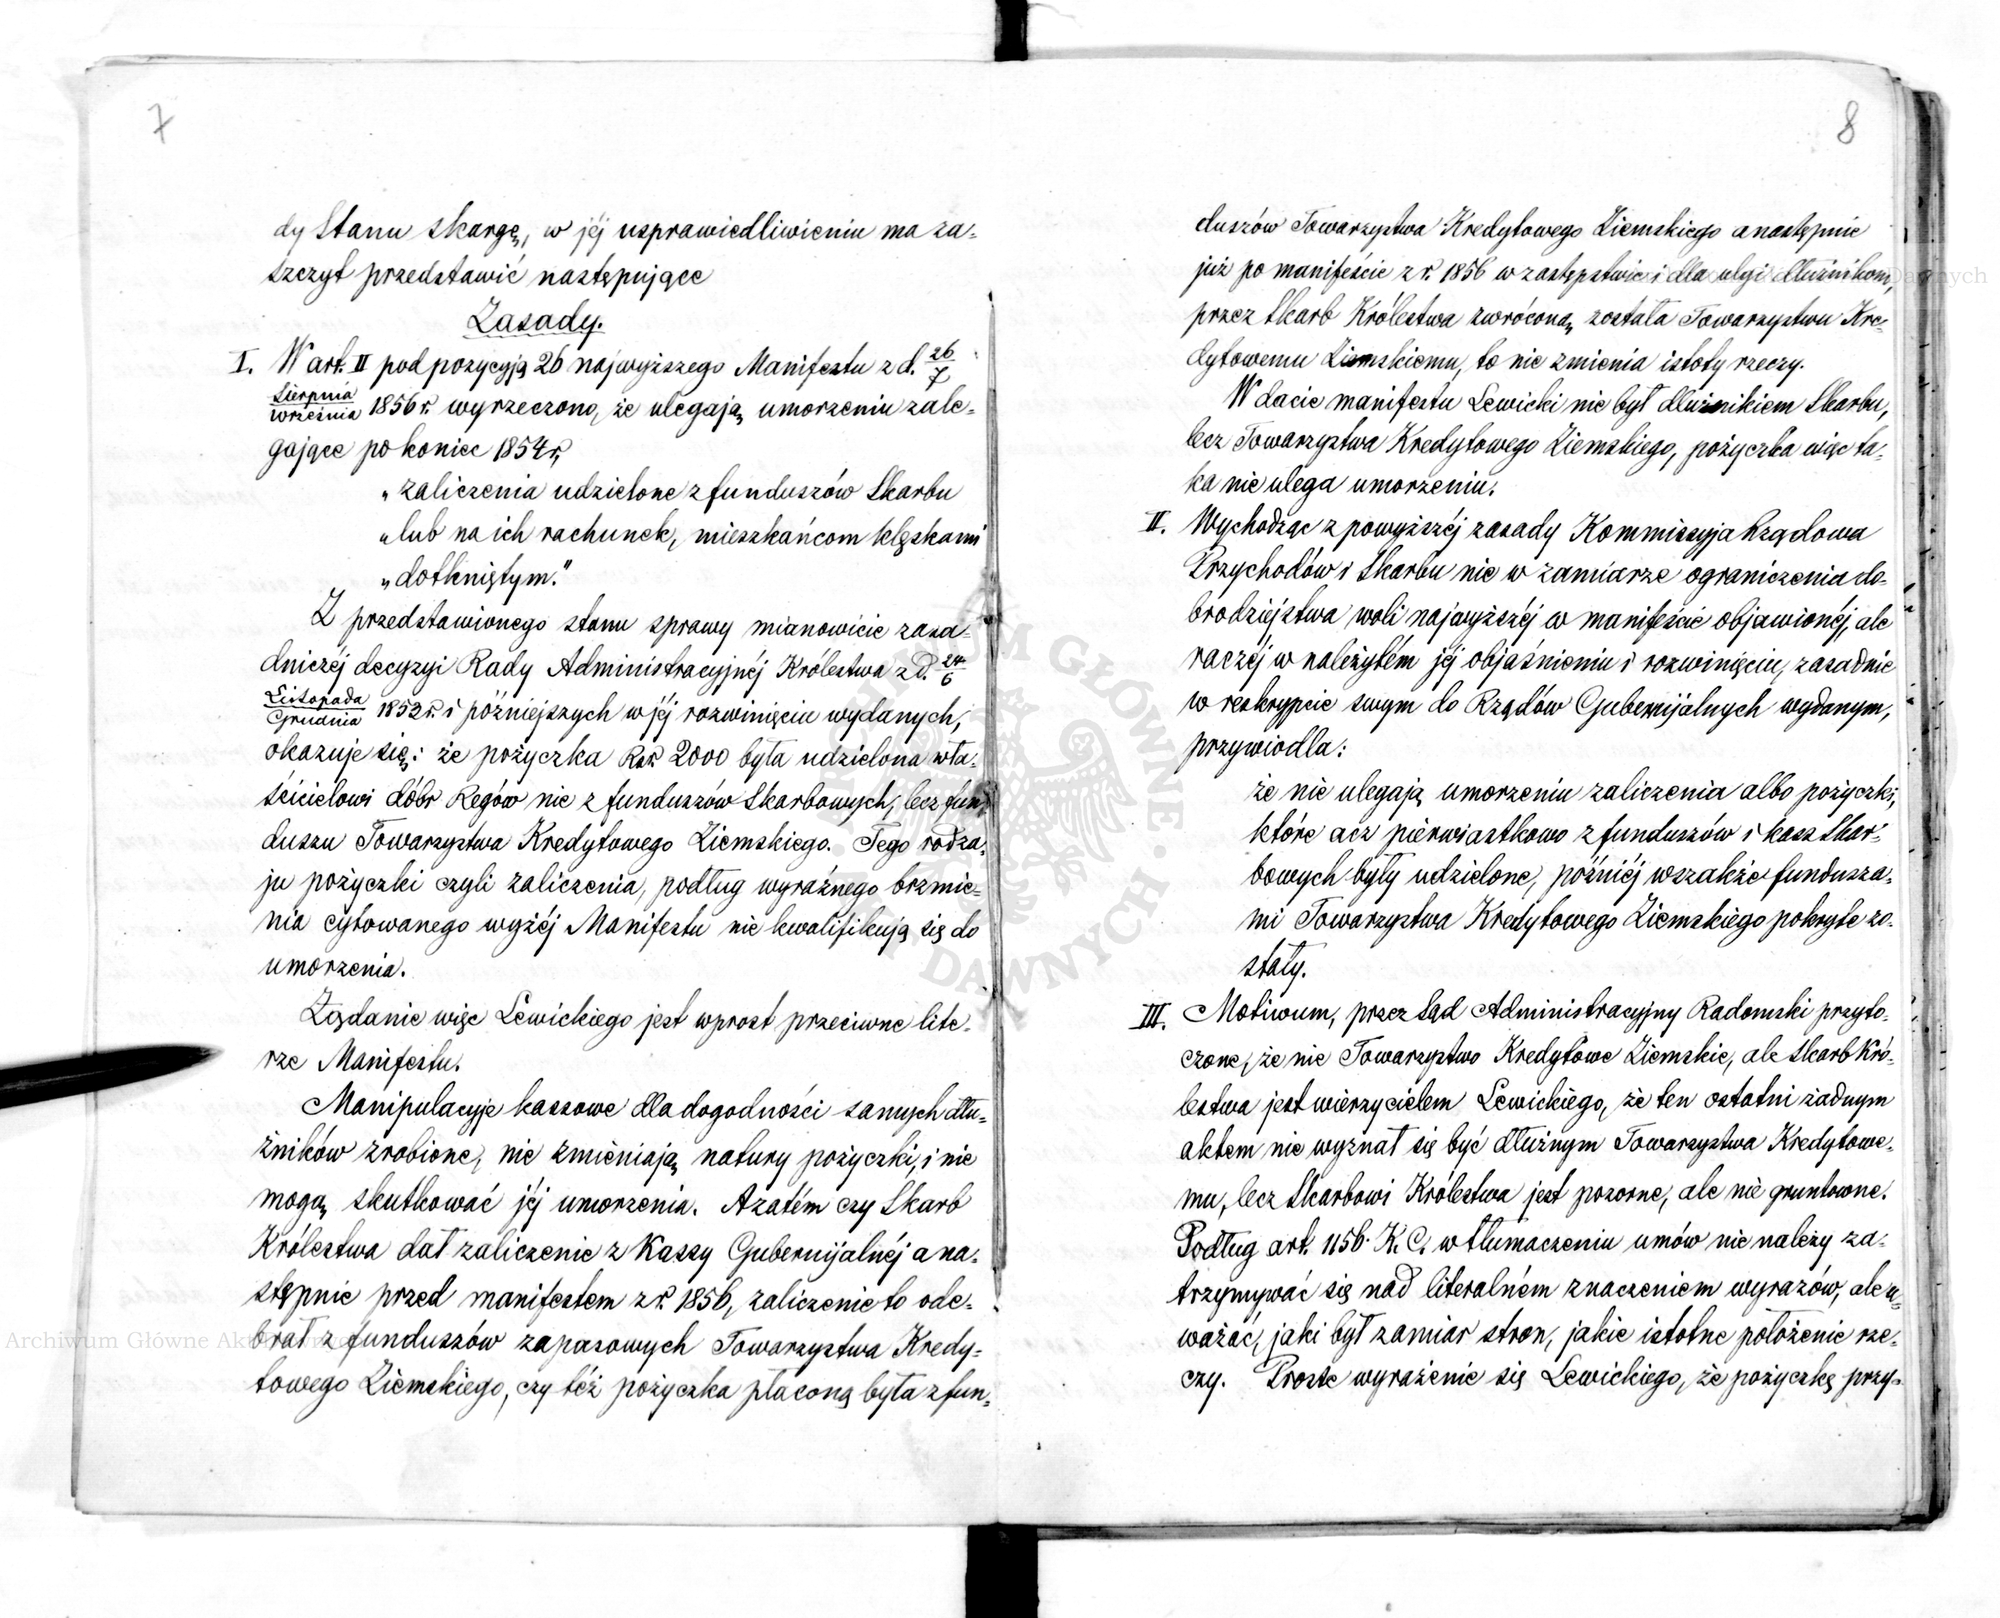 7
dy Stanu skargę, w jéj usprawiedliwieniu ma za-
szczyt przedstawić następujące
Zasady.
I. W art. II pod pozycyją 26 najwyższego Manifestu z d. 26/7
Sierpnia/Września 1856 r. wyrzeczono, że ulegają umorzeniu zale-
gające po koniec 1854 r.
„zaliczenia udzielone z funduszów Skarbu
„lub na ich rachunek, mieszkańcom klęskami
„dotkniętym."
Z przedstawionego stanu sprawy mianowicie zasa-
dniczéj decyzyi Rady Administracyjnéj Królestwa z d. 24/6
Listopada/Grudnia 1853 r. i późniejszych w jéj rozwinięciu wydanych,
okazuje się: że pożyczka Rsr. 2000 była udzielona wła-
ścicielowi dóbr Regów nie z funduszów Skarbowych, lecz fun-
duszu Towarzystwa Kredytowego Ziemskiego. Tego rodza-
ju pożyczki czyli zaliczenia, podług wyraźnego brzmie-
nia cytowanego wyżéj Manifestu nie kwalifikują się do
umorzenia.
Żądanie więc Lewickiego jest wprost przeciwne lite-
rze Manifestu.
Manipulacyje kassowe dla dogodności samych dłu-
żników zrobione, nie zmieniają natury pożyczki, i nie
mogą skutkować jéj umorzenia. A zatém czy Skarb
Królestwa dał zaliczenie z Kassy Gubernijalnéj a na-
stępnie przed manifestem z r. 1856, zaliczenie to ode-
brał z funduszów zapasowych Towarzystwa Kredy-
towego Ziemskiego, czy też pożyczka płaconą była z fun-
8
duszów Towarzystwa Kredytowego Ziemskiego a następnie
już po manifeście z r. 1856 w zastępstwie i dla ulgi dłużnikom,
przez Skarb Królestwa zwróconą została Towarzystwu Kre-
dytowemu Ziemskiemu, to nie zmienia istoty rzeczy.
W dacie manifestu Lewicki nie był dłużnikiem Skarbu,
lecz Towarzystwa Kredytowego Ziemskiego, pożyczka więc ta-
ka nie ulega umorzeniu.
II. Wychodząc z powyższéj zasady Kommissyja Rządowa
Przychodów i Skarbu nie w zamiarze ograniczenia do-
brodziejstwa woli najwyższéj w manifeście objawionéj, ale
raczéj w należytém jéj objaśnieniu i rozwinięciu, zasadnie
w reskrypcie swym do Rządów Gubernijalnych wydanym,
przywiodła:
że nie ulegają umorzeniu zaliczenia albo pożyczki,
które acz pierwiastkowo z funduszów i kass Skar-
bowych były udzielone, późniéj wszakże fundusza-
mi Towarzystwa Kredytowego Ziemskiego pokryte zo-
stały.
III. Motiwum, przez Sąd Administracyjny Radomski przyto-
czone, że nie Towarzystwo Kredytowe Ziemskie, ale Skarb Kró-
lestwa jest wierzycielem Lewickiego, że ten ostatni żadnym
aktem nie wyznał się być dłużnym Towarzystwa Kredytowe-
mu, lecz Skarbowi Królestwa jest pozorne, ale nie gruntowne.
Podług art. 1156. K. C. w tłumaczeniu umów nie należy za-
trzymywać się nad literalném znaczeniem wyrazów, ale u-
ważać, jaki był zamiar stron, jakie istotne położenie rze-
czy. Proste wyrażenie się Lewickiego, że pożyczkę przy-